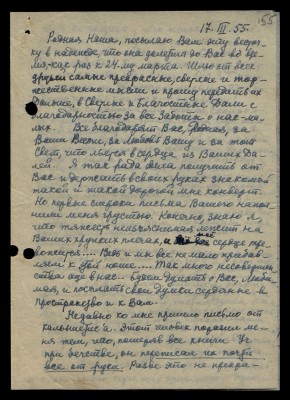 55
17. III. 55.
Родная Наша, посылаю Вам эту весточ-
ку в надежде, что она долетит до Вас во вре-
мя, как раз к 24-му марта. Шлю от всех
друзей самые прекрасные, светлые и тор-
жественные мысли и прошу передать их
с
благодарностью за все Заботы о нас ма-
лых. Все благодарят Вас, Родная, за
Ваши Вести, за Любовь Вашу и за тот
Свет, что льется в сердца, из Ваших Да-
лей. Я так рада была получить от
Вас и держать в своих руках знакомый
такой и такой дорогой мне конверт.
Но первые строки письма Вашего напол-
нили меня грустью. Конечно, знаю я,
что тяжесть лежит на
Ваших хрупких плечах, и сердце тре-
вожится.... Ведь и мы все не мало прибав-
ляем к этой ноше... Так много несовершен-
ства еще в нас. Будем думать о Вас, Люби-
мая, и посылать свои Думы сердечные в
пространство и к Вам.
Недавно ко мне пришло письмо от
Этот человек поразил ме-
ня тем, что, потеряв все книги
при бегстве, он переписал их почти
все от руки. Разве это не прекра-